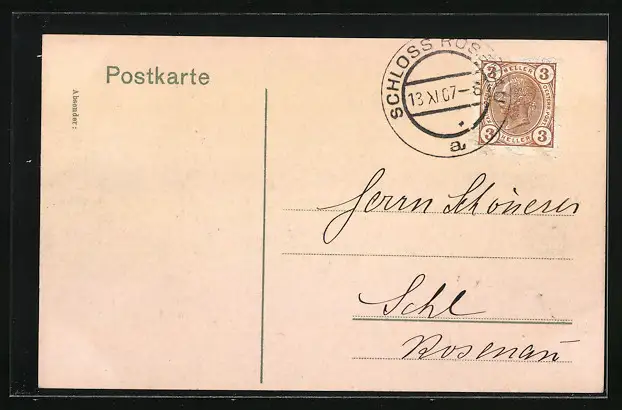 Postkarte
Absender:
SCHLOSS ROSENAU
13 XI 07
a
3 HELLER 3
3 HELLER 3
Herrn Schönerer
Schl
Rosenau